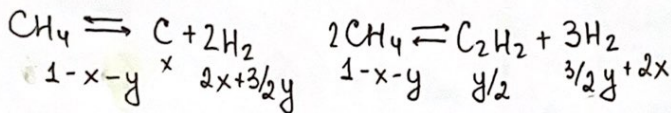 CH₄ ⇌ C + 2H₂    2CH₄ ⇌ C₂H₂ + 3H₂
1-x-y    x    2x+3/2y    1-x-y    y/2    3/2y+2x